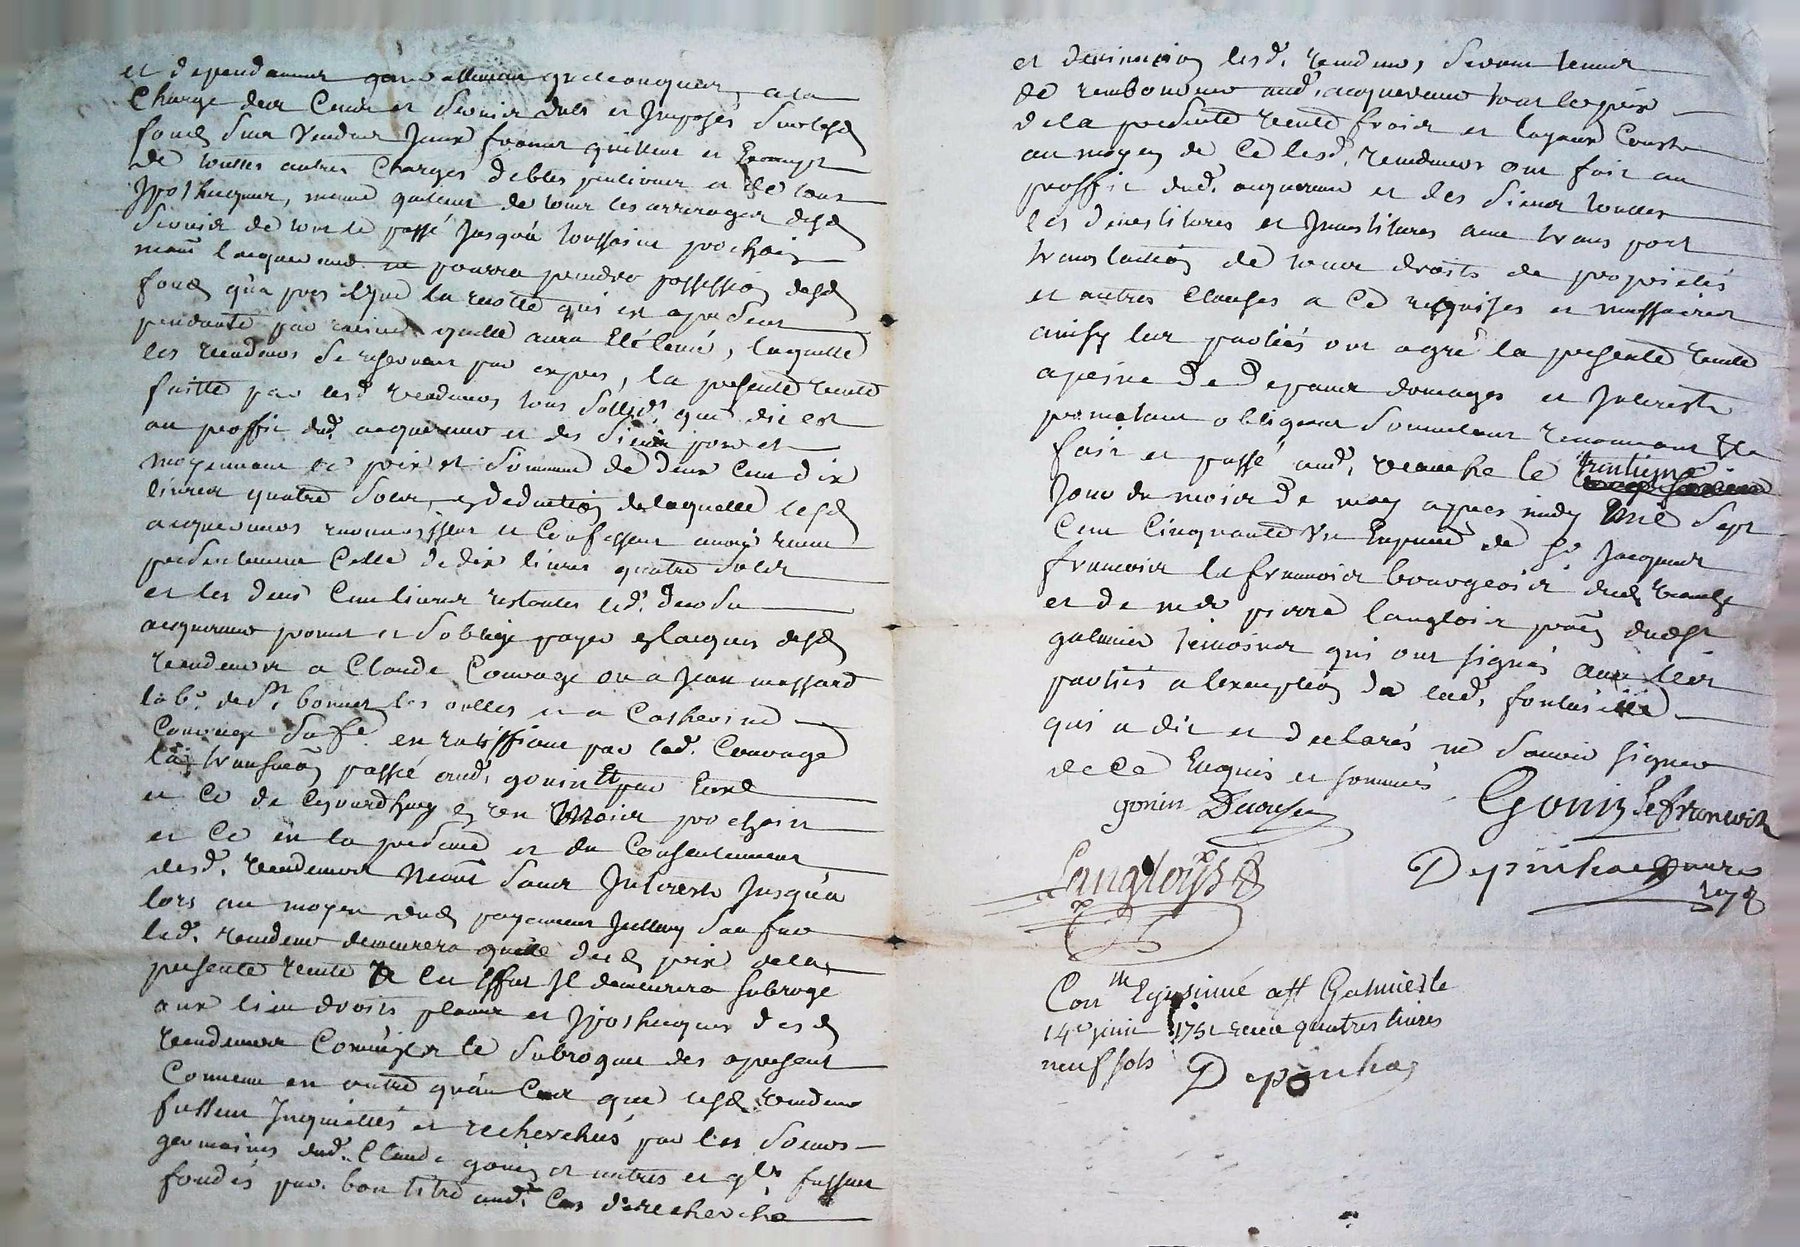 et dependances generallement quelconques, a la
Charge des Cens et servis dubs et Imposés sur lesd
fonds sus vendus Jeux francs quittes et Exempt
de touttes autres Charges debtes pentions et de tous
Ypothecques, meme quittes de tous les arrerages desd
servis de tout le passé Jusqua toussaint prochain
neant lacquereur ne pourra prendre possession desd
fonds qua pres que la recolte qui est apresent
pendante par racines quelle aura Eté levé, laquelle
les vendeurs se reservent par expres, la presente vente
faitte par lesd vendeurs tous sollid. que dit est
au proffit dud. acquereur et des siens pour et
moyennant le prix et somme de deux Cent dix
livres quatre sols, en deduction de laquelle lesd
acquereurs reconnoissent et Confessent avoir
presentement Celle de dix livres quatre sols
et les deux Cent livres restantes led.
acquereur promet et soblige payer en lacquis desd
vendeurs a Claude Couvage ou a Jean massard
lab. de St. bonnet les oulles et a Catherine
Couvage sa fe. en ratiffiant par lad. Couvage
la transaon passée aud. gonin Et par Eux
et Ce de Cejourdhuy en un Mois prochain
et Ce en la presence et du Consentement
desd. vendeurs Neant sans Interests Jusqua
lors au moyen dud payement Jcelluy
led. vendeur demeurera quitte dud prix de la
presente vente Et En Effet Jl demeurera subrogé
aux lieu droits places et Jpothecques desd
vendeurs Comme Jls le subrogent des apresent
Convenu en outre quen Cas que lesd. vendeurs
fussent Jnquiettés et recherchés par les soeurs
germaines dud. Claude gonin et autres et qls fussent
fondés par bon titre aud. Cas de recherche
et deviennion lesd. vendeurs seront tenus
de rembourcer aud. acquereur tout le prix
de la presente vente frais et loyaux Cousts
au moyen de Ce lesd. vendeurs ont fait au
proffit dud. acquereur et des siens touttes
les devestitures et Jnvestitures aux trans port
translation de tous droits de proprietés
et autres Clauses a Ce requises et nessaires
ainsy les parties ont agré la presente vente
a peine de depens domages et Jnterests
prometant obligeant soumetant renonceant &c
fait et passé aud. veauche le trentieme
Jour du mois de may apres midy Mil Sept
Cent Cinquante Un En presence de Sr. Jacques
francois lafrancois bourgeois dud veauche
et de mre pierre langlois praen dud St
galmier temoins qui ont signés avec les
parties a lexception de lad. fontaine
qui a dit et declarés ne savoir signer
de Ce Enquis et sommés
gonin Gonin lefrancois
Langloys
Depinhac
Con. m Et insinué aff Galmier le
14e juin 1751 receu quatres livres
neuf sols Depinhac